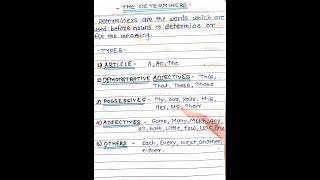 - THE DETERMINERS -
Determiners are the words which are
used before nouns to determine or
fix the meaning.
- TYPES -
1) ARTICLE - A, An, The
2) DEMONSTRATIVE ADJECTIVES - This,
That, These, Those
3) POSSESSIVES - My, our, Your, His,
Her, Its, Their.
4) ADJECTIVES - Some, Many, Much, any,
all, both, Little, few, Less,
5) OTHERS - Each, Every, Next, another,
either.